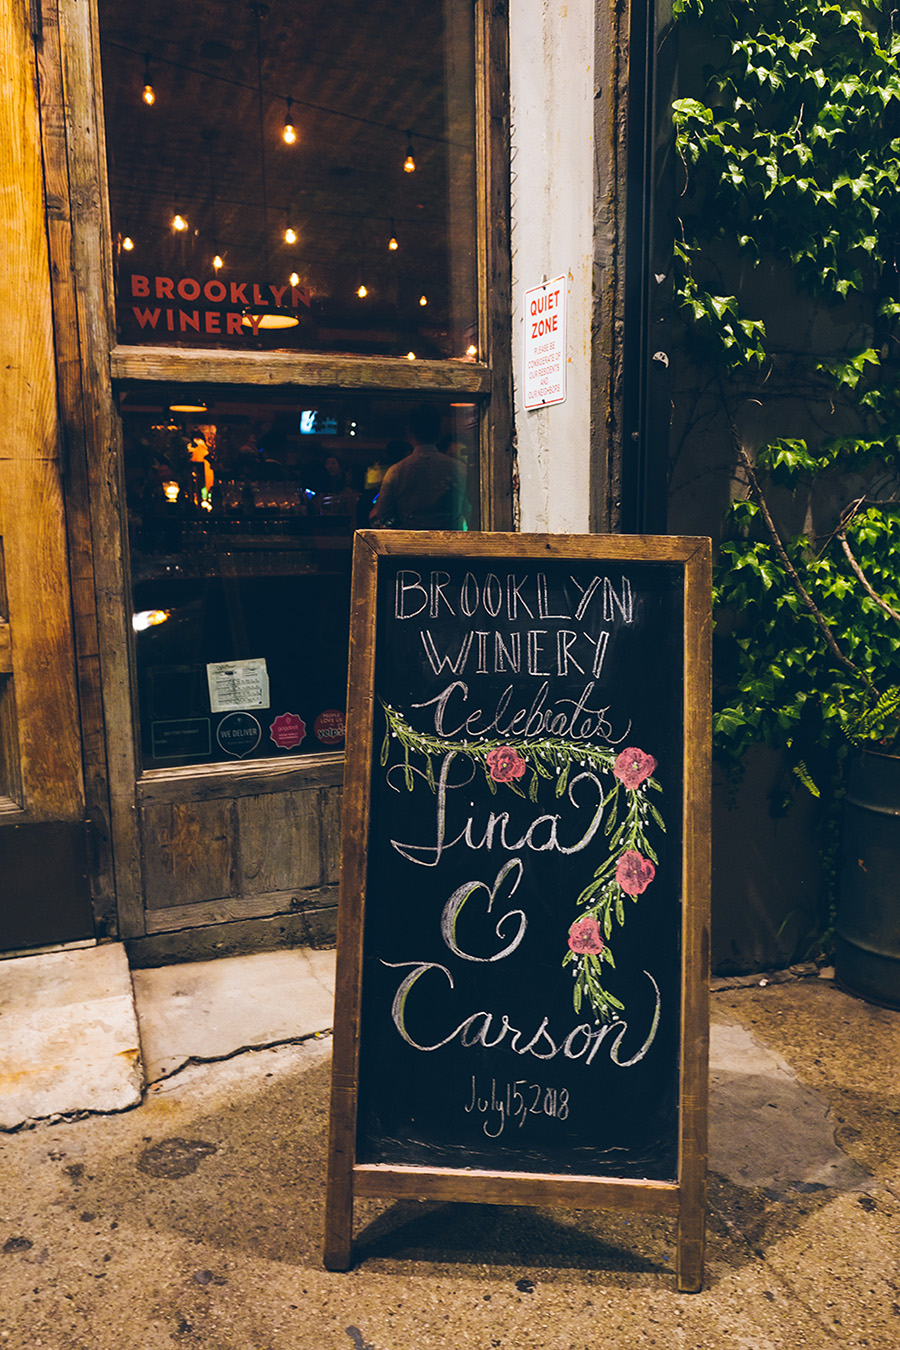 BROOKLYN
WINERY
QUIET
ZONE
PLEASE BE
CONSIDERATE OF
OUR RESIDENTS
AND
OUR NEIGHBORS
WE DELIVER
PEOPLE
LOVE US
yelp
BROOKLYN
WINERY
Celebrates
Lina
&
Carson
July 15, 2018